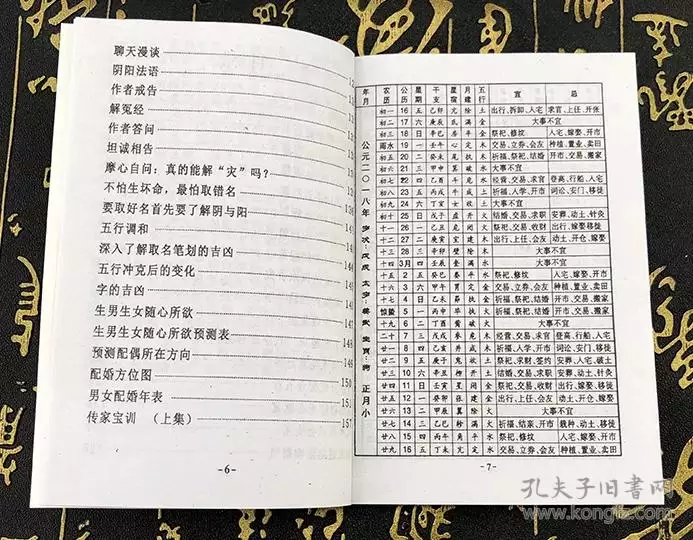 聊天漫谈
阴阳法语
作者戒告
解冤经
作者答问
坦诚相告
摩心自问:真的能解“灾”吗?
不怕生坏命,最怕取错名
要取好名首先要了解阴与阳
五行调和
深入了解取名笔划的吉凶
五行冲克后的变化 144
字的吉凶 145
生男生女随心所欲 146
生男生女随心所欲预测表 148
预测配偶所在方向 149
配婚方位图 150
男女配婚年表 151
传家宝训 (上集) 157
-6-
年月 农历 公历 星期 干支 星宿 月建 五行 宜 忌
公元二〇一八年 岁次:戊戌 太岁:姜武 生肖:狗 正月小
初一 16 五 己卯 亢 除 土 出行、拆卸、入宅 求官、上任、开张
初二 17 六 庚辰 氐 满 金 大事不宜
初三 18 日 辛巳 房 平 金 祭祀、修坟 入宅、嫁娶、开市
雨水 19 一 壬午 心 定 木 交易、立券、会友 种植、置业、卖田
初五 20 二 癸未 尾 执 木 祈福、祭祀、结婚 开市、交易、搬家
初六 21 三 甲申 箕 破 水 大事不宜
初七 22 四 乙酉 斗 危 水 经营、交易、求官 登高、行船、入宅
初八 23 五 丙戌 牛 成 土 祈福、入学、开市 词讼、安门、移徙
初九 24 六 丁亥 女 收 土 大事不宜
初十 25 日 戊子 虚 开 火 结婚、交易、求职 安葬、动土、针灸
十一 26 一 己丑 危 闭 火 祭祀、交易、收财 出行、嫁娶、移徙
十二 27 二 庚寅 室 建 木 出行、上任、会友 动土、开仓、嫁娶
十三 28 三 辛卯 壁 除 木 大事不宜
十四 3月 四 壬辰 奎 满 水 大事不宜
十五 2 五 癸巳 娄 平 水 祭祀、修坟 入宅、嫁娶、开市
十六 3 六 甲午 胃 定 金 交易、立券、会友 种植、置业、卖田
十七 4 日 乙未 昴 执 金 祈福、祭祀、结婚 开市、交易、搬家
惊蛰 5 一 丙申 毕 执 火 祈福、祭祀、结婚 开市、交易、搬家
十九 6 二 丁酉 觜 破 火 大事不宜
二十 7 三 戊戌 参 危 木 经营、交易、求官 登高、行船、入宅
廿一 8 四 己亥 井 成 木 祈福、入学、开市 词讼、安门、移徙
廿二 9 五 庚子 鬼 收 土 祭祀、求财、签约 安葬、入宅、破土
廿三 10 六 辛丑 柳 开 土 结婚、交易、求职 安葬、动土、针灸
廿四 11 日 壬寅 星 闭 金 祭祀、交易、收财 出行、嫁娶、移徙
廿五 12 一 癸卯 张 建 金 出行、上任、会友 动土、开仓、嫁娶
廿六 13 二 甲辰 翼 除 火 大事不宜
廿七 14 三 乙巳 轸 满 火 祈福、结亲、开市 栽种、动土、移徙
廿八 15 四 丙午 角 平 水 祭祀、修坟 入宅、嫁娶、开市
廿九 16 五 丁未 亢 定 水 交易、立券、会友 种植、置业、卖田
-7-
孔夫子旧书网
www.kongfz.com